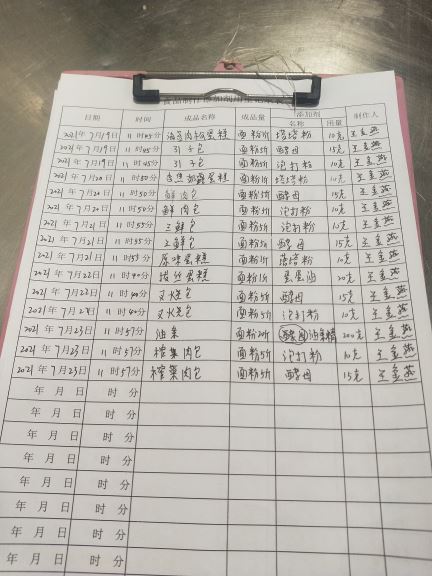 食品制作添加剂用量记录表
日期 时间 成品名称 成品量 添加剂 制作人
名称 用量
2021年7月19日 11时45分 海苔肉松蛋糕 面粉1斤 塔塔粉 10克 王金燕
2021年7月19日 11时45分 引子包 面粉5斤 酵母 15克 王金燕
2021年7月19日 11时45分 引子包 面粉5斤 泡打粉 10克 王金燕
2021年7月20日 11时50分 蛋糕 面粉1斤 塔塔粉 10克 王金燕
2021年7月20日 11时50分 鲜肉包 面粉5斤 酵母 15克 王金燕
2021年7月20日 11时50分 鲜肉包 面粉5斤 泡打粉 10克 王金燕
2021年7月21日 11时55分 三鲜包 面粉5斤 泡打粉 10克 王金燕
2021年7月21日 11时55分 三鲜包 面粉5斤 酵母 15克 王金燕
2021年7月21日 11时55分 原味蛋糕 面粉1斤 塔塔粉 10克 王金燕
2021年7月22日 11时40分 拔丝蛋糕 面粉1斤 蛋糕油 20克 王金燕
2021年7月22日 11时40分 叉烧包 面粉5斤 酵母 15克 王金燕
2021年7月22日 11时40分 叉烧包 面粉5斤 泡打粉 10克 王金燕
2021年7月23日 11时57分 油条 面粉20斤 油条精 200克 王金燕
2021年7月23日 11时57分 榨菜肉包 面粉5斤 泡打粉 10克 王金燕
2021年7月23日 11时57分 榨菜肉包 面粉5斤 酵母 15克 王金燕
年 月 日 时 分
年 月 日 时 分
年 月 日 时 分
年 月 日 时 分
年 月 日 时 分
年 月 日 时 分
年 月 日 时 分
年 月 日 时 分